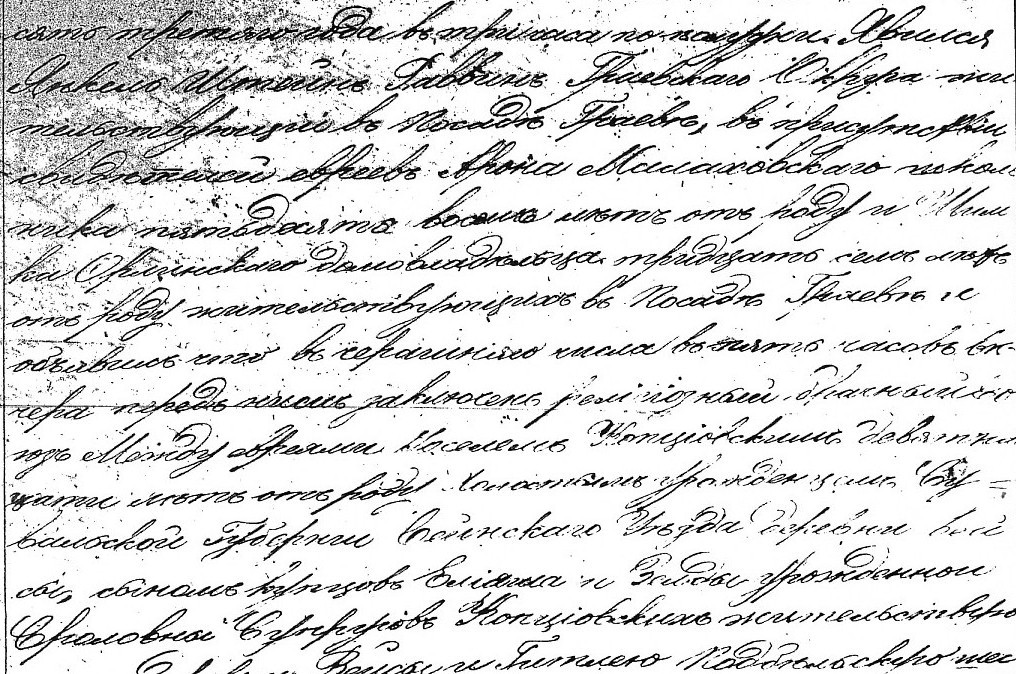 сятъ третьяго года въ три часа по полудни. Явился
Янкель Штейнъ Раввинъ Граевскаго Округа жи
тельствующій въ Посадѣ Граевѣ, въ присутствіи
свидѣтелей евреевъ Арона Малаховскаго школь
ника пятьдесятъ восемь лѣтъ отъ роду и Шим
ки Орлинскаго домовладѣльца тридцать семь лѣтъ
отъ роду жительствующихъ въ Посадѣ Граевѣ и
объявилъ что въ черашняго числа въ пять часовъ ве-
чера передъ нимъ заключенъ религіозный брачный со
юзъ Между евреями Іоселемъ Копціовскимъ девятнад
цати лѣтъ отъ роду холостымъ урожденцемъ Су=
валкской Губерніи Сейнскаго Уѣзда деревни
сы, сыномъ купцовъ Еліяша и Гольды урожденной
Супруговъ Копціовскихъ жительствую
и Гитлею Подбѣльскою